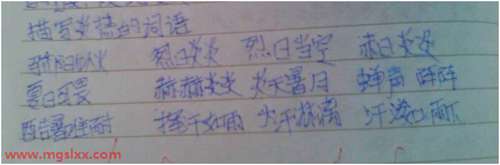 描写炎热的词语
骄阳似火 烈日炎炎 烈日当空 赤日炎炎
夏日可畏 赫赫炎炎 炎天暑月 蝉声阵阵
酷暑难耐 挥汗如雨 大汗淋漓
www.mgslxx.com